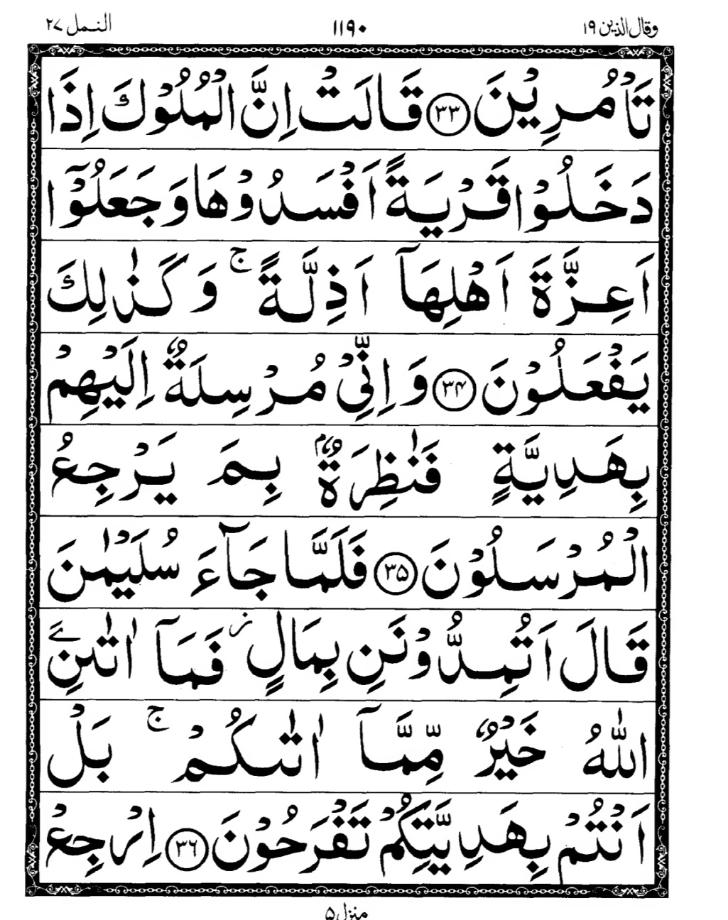 وقال الذین ۱۹ ۱۱۹۰ النمل ۲۷
تَاْمُرِیْنَ ﴿۳۳﴾ قَالَتْ اِنَّ الْمُلُوْكَ اِذَا
دَخَلُوْا قَرْیَةً اَفْسَدُوْهَا وَ جَعَلُوْۤا
اَعِزَّةَ اَهْلِهَاۤ اَذِلَّةً ۚ وَ كَذٰلِكَ
یَفْعَلُوْنَ ﴿۳۴﴾ وَ اِنِّیْ مُرْسِلَةٌ اِلَیْهِمْ
بِهَدِیَّةٍ فَنٰظِرَةٌۢ بِمَ یَرْجِعُ
الْمُرْسَلُوْنَ ﴿۳۵﴾ فَلَمَّا جَآءَ سُلَیْمٰنَ
قَالَ اَتُمِدُّوْنَنِ بِمَالٍ ؗ فَمَاۤ اٰتٰىنِۦَ
اللّٰهُ خَیْرٌ مِّمَّاۤ اٰتٰىكُمْ ۚ بَلْ
اَنْتُمْ بِهَدِیَّتِكُمْ تَفْرَحُوْنَ ﴿۳۶﴾ اِرْجِعْ
منزل ۵